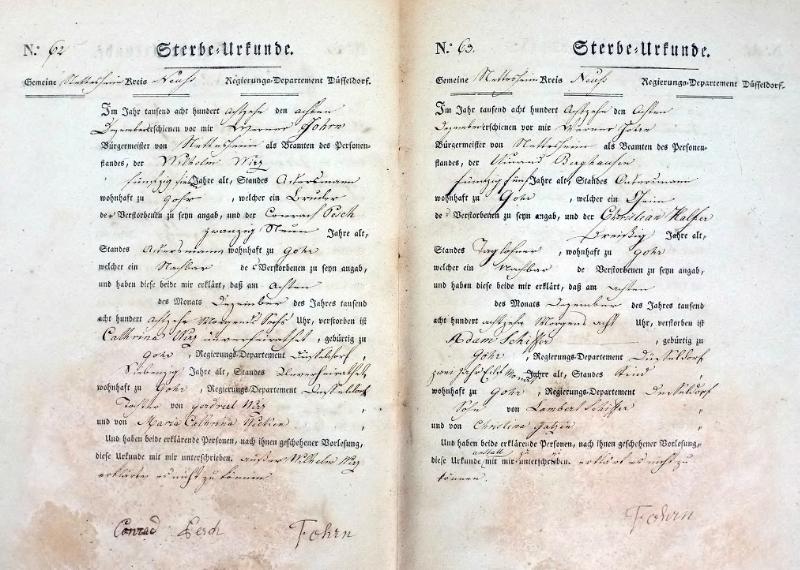 N.º 62 Sterbe-Urkunde.
Gemeine Nettesheim Kreis Neuß Regierungs-Departement Düsseldorf.
Im Jahr tausend acht hundert achtzehn den achten
Dezember erschienen vor mir Werner Fohrn
Bürgermeister von Nettesheim als Beamten der Personen-
standes, der Wilhelm Wirz
fünfzig Jahre alt, Standes Ackersmann
wohnhaft zu Gohr, welcher ein Bruder
de Verstorbenen zu seyn angab, und der Conrad Pesch
zwanzig Neun Jahre alt,
Standes Ackersmann wohnhaft zu Gohr
welcher ein Nachbar de Verstorbenen zu seyn angab,
und haben diese beide mir erklärt, daß am achten
des Monats Dezember des Jahres tausend
acht hundert achtzehn Morgens Sechs Uhr, verstorben ist
Catharina Wirz unverheirathet, gebürtig zu
Gohr, Regierungs-Departement Düsseldorf
Siebenzig Jahre alt, Standes Unverheirathet
wohnhaft zu Gohr, Regierungs-Departement Düsseldorf
Tochter von Wirz
und von Maria Catharina
Und haben beide erklärende Personen, nach ihnen geschehener Vorlesung,
diese Urkunde mit mir unterschrieben. außer Wilhelm Wirz
erklärte es nicht zu können
Conrad Pesch Fohrn
N.º 63. Sterbe-Urkunde.
Gemeine Nettesheim Kreis Neuß Regierungs-Departement Düsseldorf.
Im Jahr tausend acht hundert Achtzehn den Achten
Dezember erschienen vor mir Werner Fohrn
Bürgermeister von Nettesheim als Beamten der Personen-
standes, der Berghausen
fünfzig fünf Jahre alt, Standes Ackersmann
wohnhaft zu Gohr, welcher ein
de Verstorbenen zu seyn angab, und der Christian Halfer
Dreißig Jahre alt,
Standes Taglöhner, wohnhaft zu Gohr
welcher ein Nachbar de Verstorbenen zu seyn angab,
und haben diese beide mir erklärt, daß am achten
des Monats Dezember des Jahres tausend
acht hundert achtzehn Morgens acht Uhr, verstorben ist
Adam Schiffer, gebürtig zu
Gohr, Regierungs-Departement Düsseldorf
zwei Jahr Eilf Monath Jahre alt, Standes Kind
wohnhaft zu Gohr, Regierungs-Departement Düsseldorf
Sohn von Lambert Schiffer
und von Christina
Und haben beide erklärende Personen, nach ihnen geschehener Vorlesung,
diese Urkunde mit mir unterschreiben. erklärt es nicht zu
können.
Fohrn